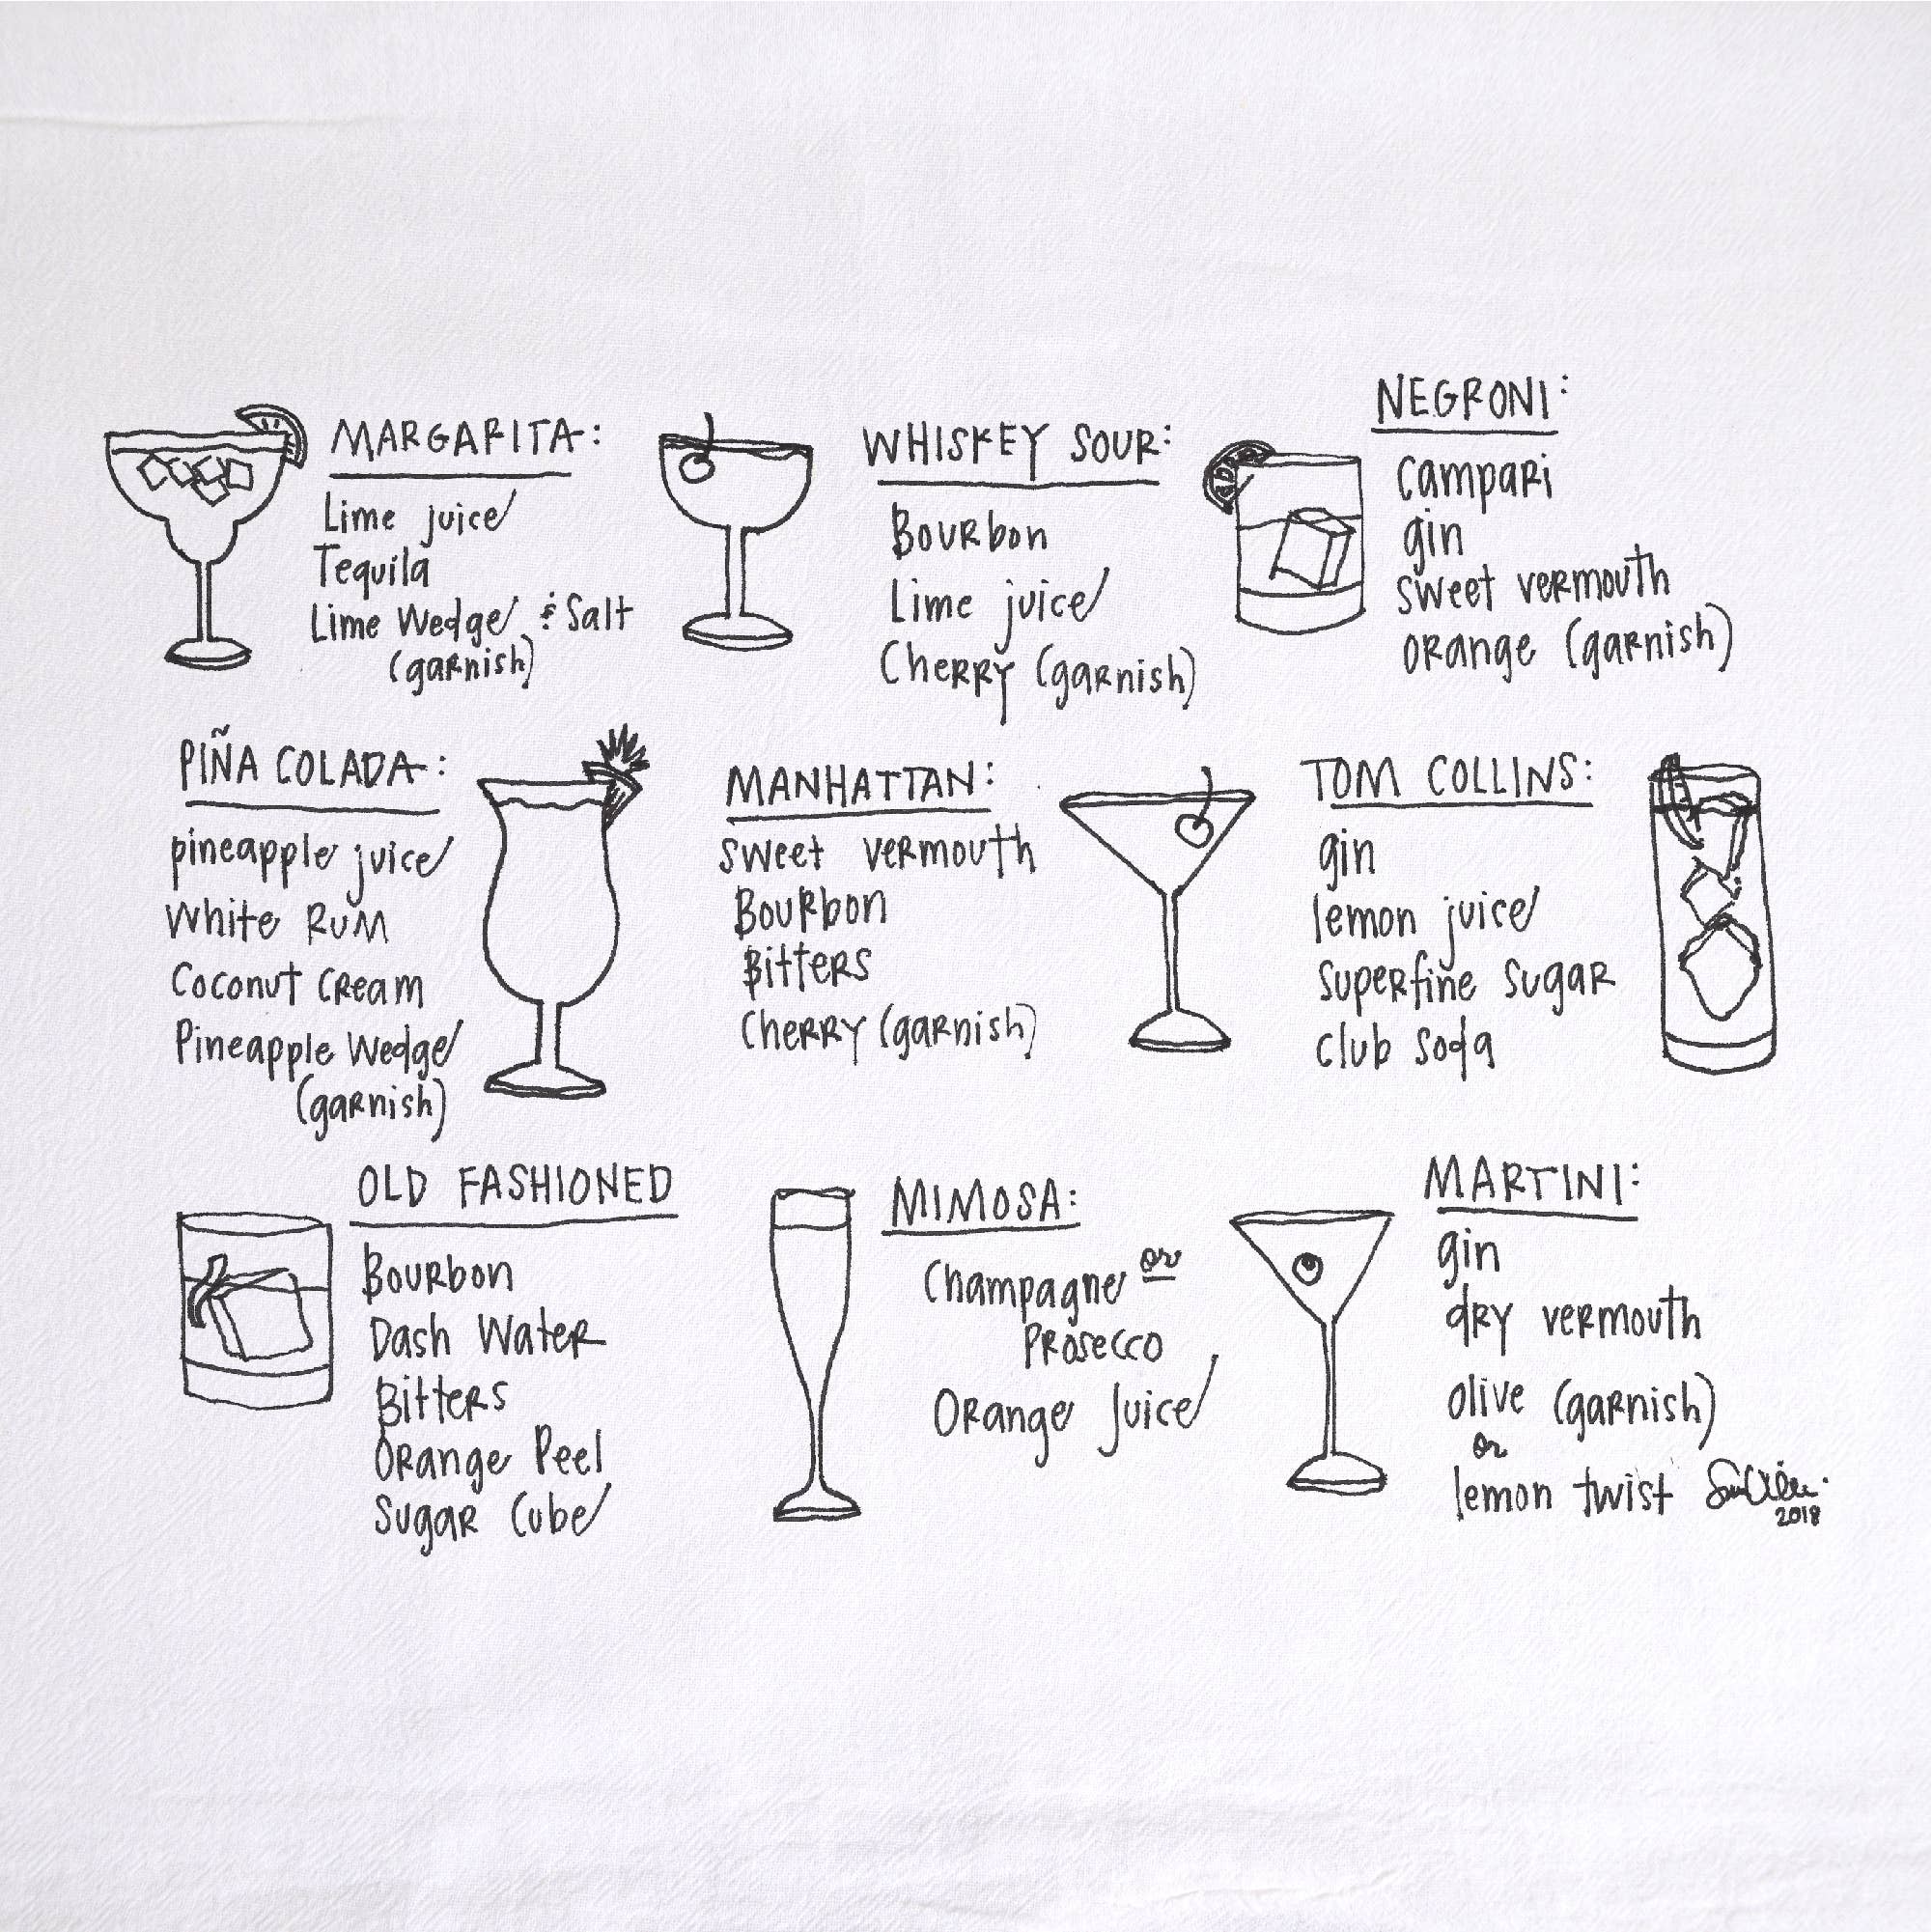 MARGARITA:
Lime juice
Tequila
Lime Wedge & Salt
(garnish)
WHISKEY SOUR:
Bourbon
Lime juice
Cherry (garnish)
NEGRONI:
Campari
gin
sweet vermouth
orange (garnish)
PIÑA COLADA:
pineapple juice
White Rum
Coconut Cream
Pineapple Wedge
(garnish)
MANHATTAN:
sweet vermouth
Bourbon
Bitters
Cherry (garnish)
TOM COLLINS:
gin
lemon juice
superfine sugar
club soda
OLD FASHIONED
Bourbon
Dash Water
Bitters
Orange Peel
Sugar Cube
MIMOSA:
Champagne or
Prosecco
Orange Juice
MARTINI:
gin
dry vermouth
olive (garnish)
or
lemon twist
2018